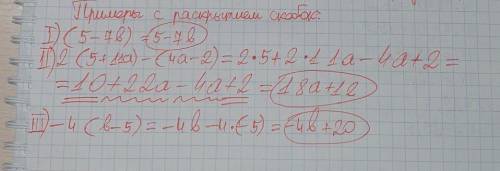 Примеры с раскрытием скобок:
I) (5-7в) = 5-7в
II) 2(5+11а)-(4а-2)=2·5+2·11а-4а+2=
=10+22а-4а+2=18а+12
III) -4(в-5)=-4в-4·(-5)=-4в+20